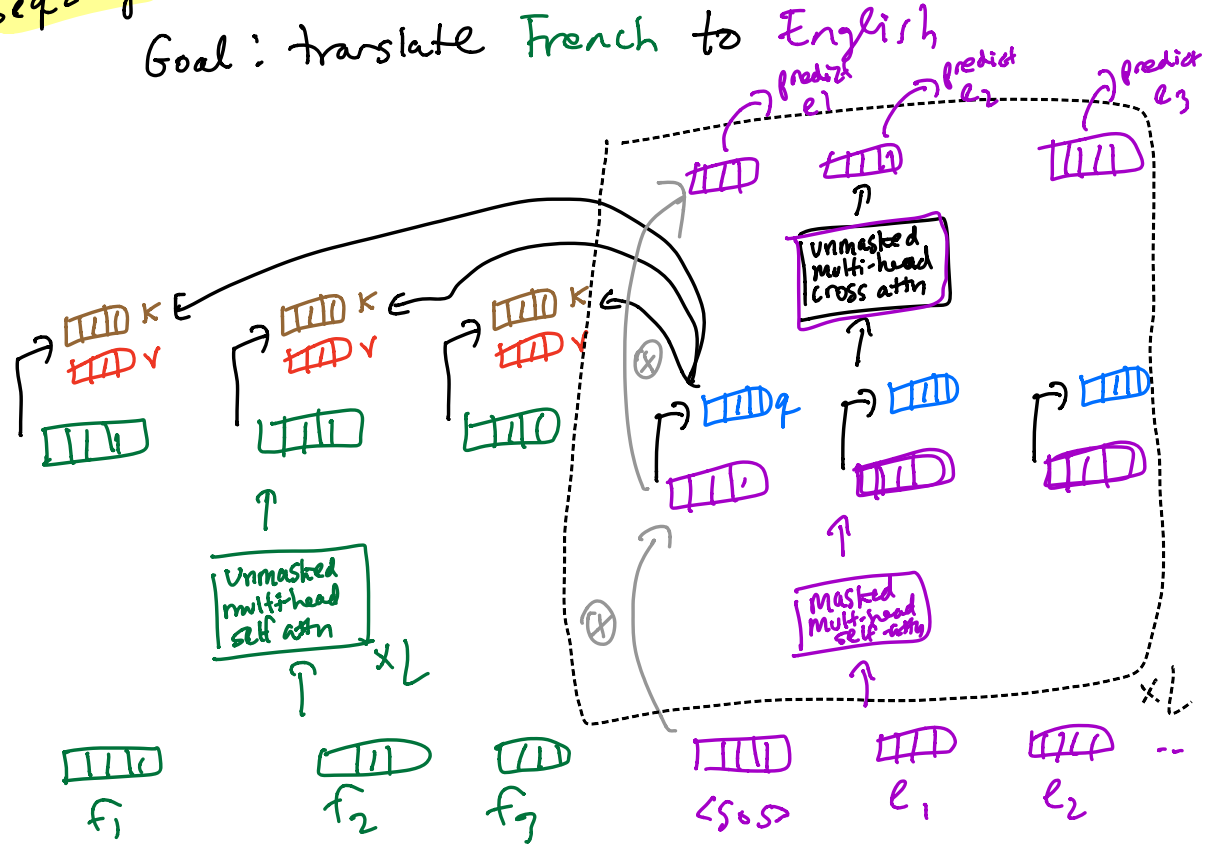 Goal: translate French to English
predict e1
predict e2
predict e3
unmasked
multi-head
cross attn
K
V
K
V
K
V
q
Unmasked
multi-head
self attn
x L
Masked
multi-head
self-attn
x L
f1
f2
f3
<sos>
e1
e2
--